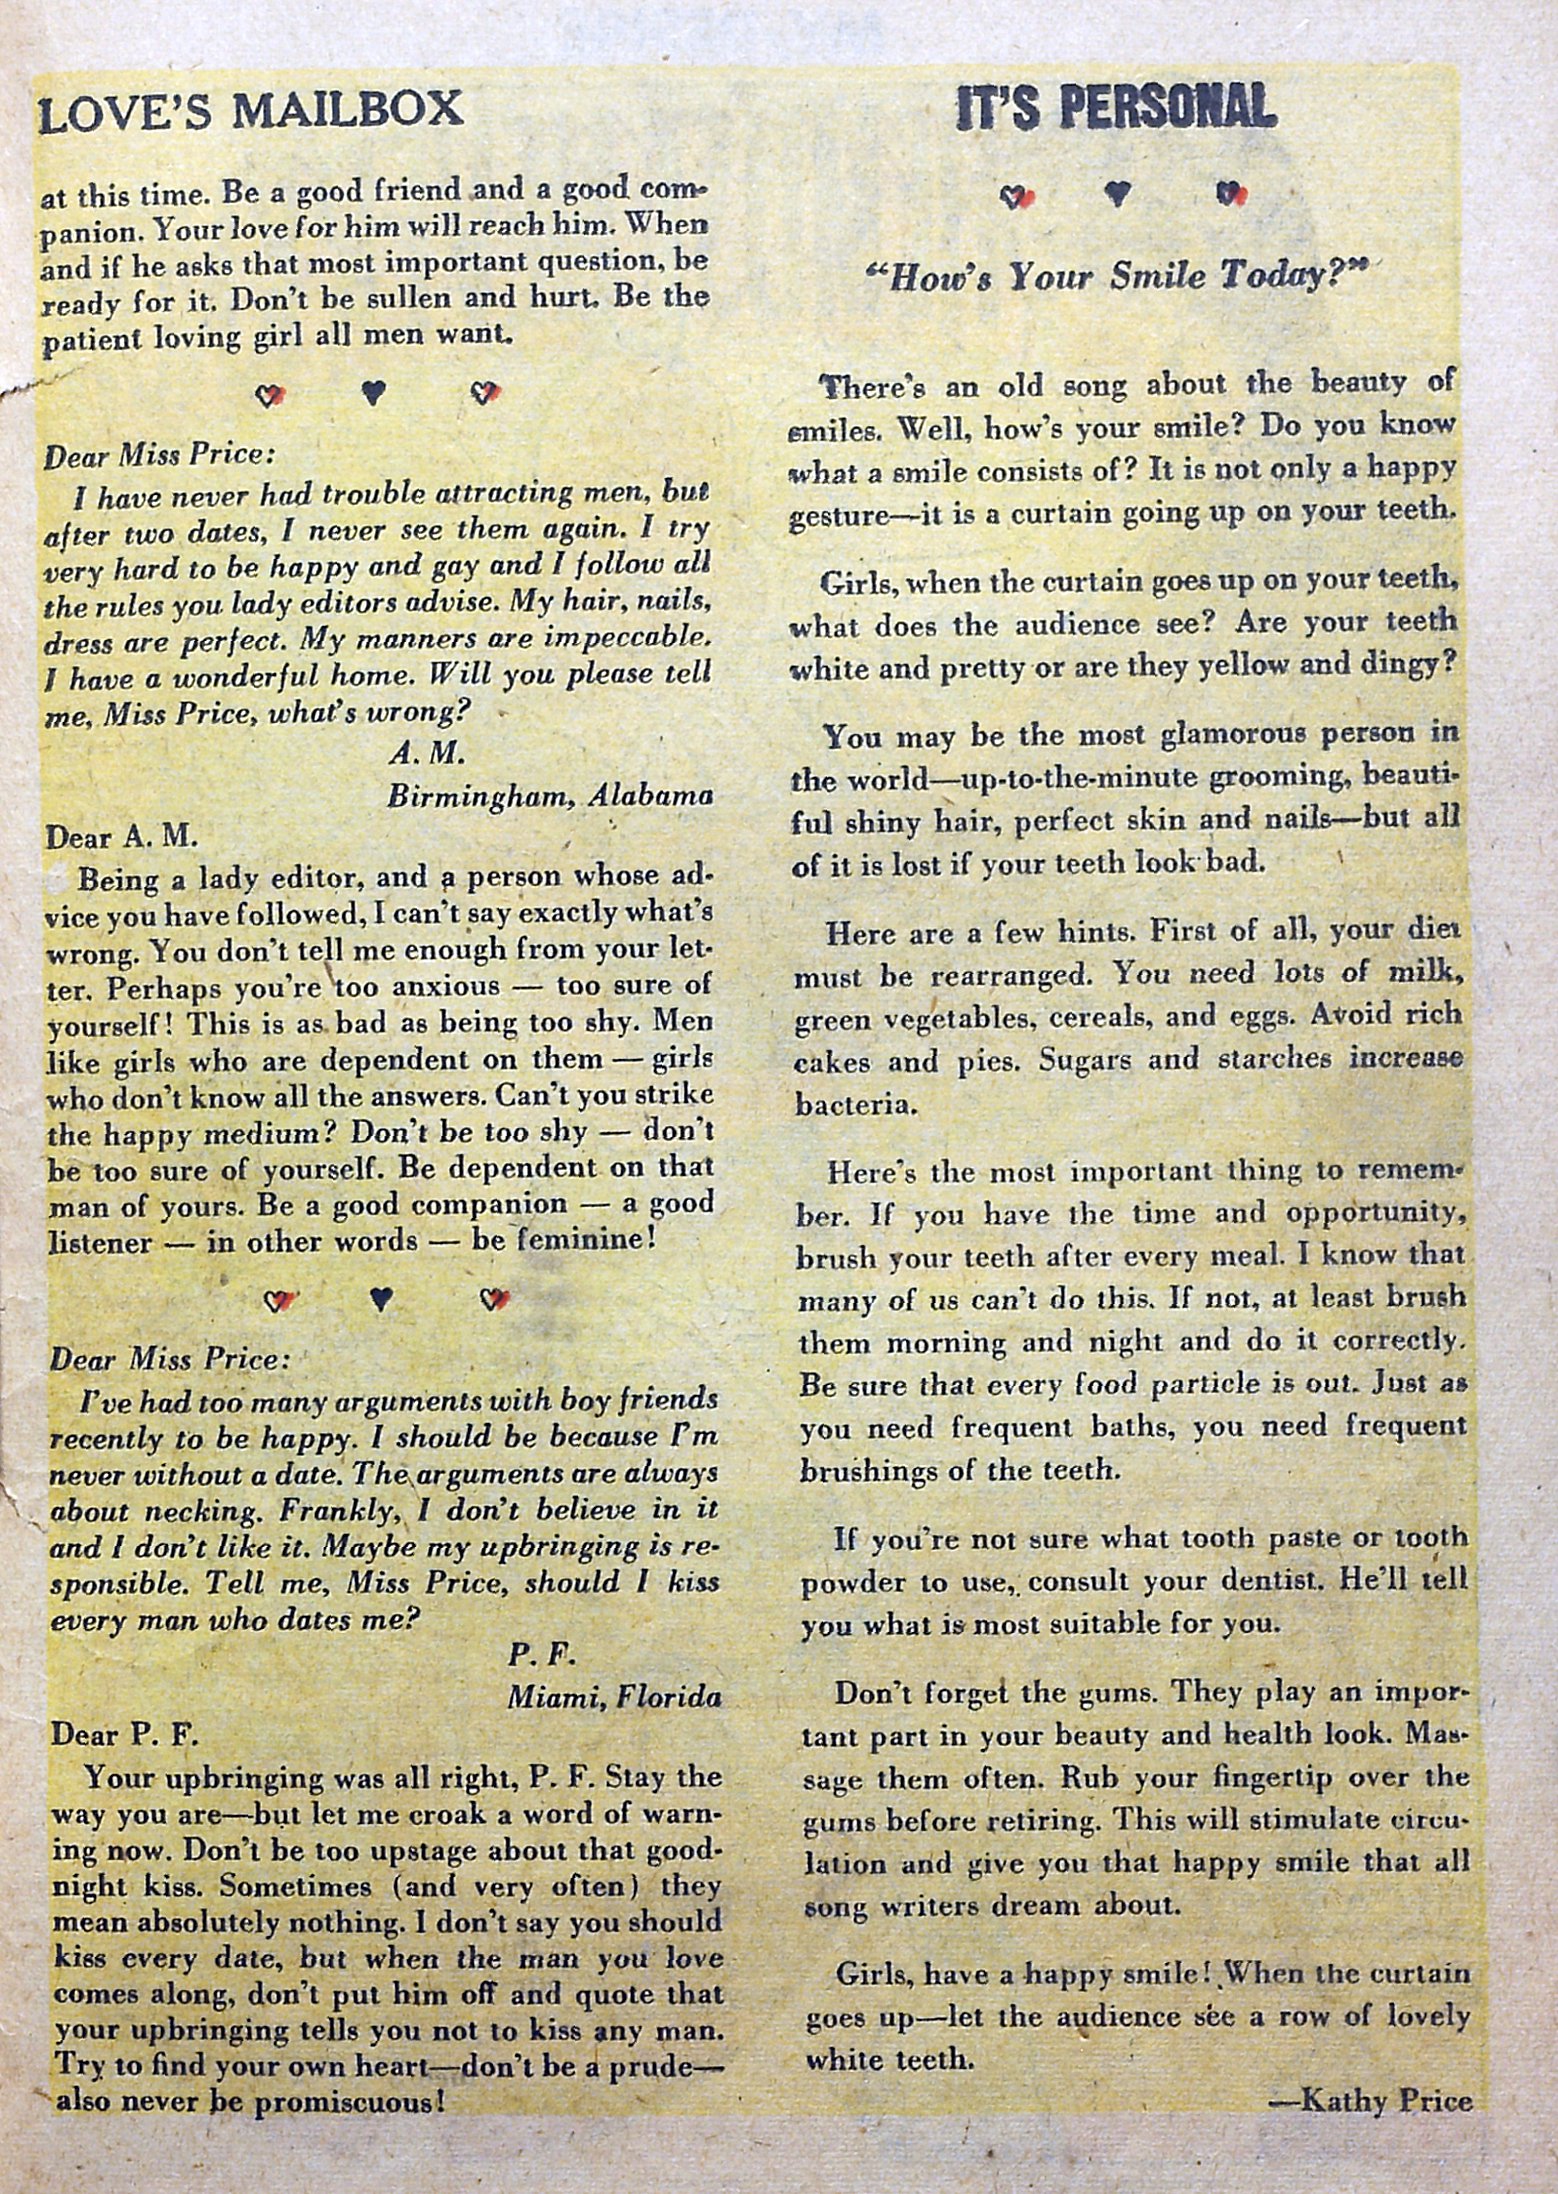 LOVE'S MAILBOX
at this time. Be a good friend and a good com-
panion. Your love for him will reach him. When
and if he asks that most important question, be
ready for it. Don't be sullen and hurt. Be the
patient loving girl all men want.
Dear Miss Price:
I have never had trouble attracting men, but
after two dates, I never see them again. I try
very hard to be happy and gay and I follow all
the rules you lady editors advise. My hair, nails,
dress are perfect. My manners are impeccable.
I have a wonderful home. Will you please tell
me, Miss Price, what's wrong?
A. M.
Birmingham, Alabama
Dear A. M.
Being a lady editor, and a person whose ad-
vice you have followed, I can't say exactly what's
wrong. You don't tell me enough from your let-
ter. Perhaps you're too anxious — too sure of
yourself! This is as bad as being too shy. Men
like girls who are dependent on them — girls
who don't know all the answers. Can't you strike
the happy medium? Don't be too shy — don't
be too sure of yourself. Be dependent on that
man of yours. Be a good companion — a good
listener — in other words — be feminine!
Dear Miss Price:
I've had too many arguments with boy friends
recently to be happy. I should be because I'm
never without a date. The arguments are always
about necking. Frankly, I don't believe in it
and I don't like it. Maybe my upbringing is re-
sponsible. Tell me, Miss Price, should I kiss
every man who dates me?
P. F.
Miami, Florida
Dear P. F.
Your upbringing was all right, P. F. Stay the
way you are—but let me croak a word of warn-
ing now. Don't be too upstage about that good-
night kiss. Sometimes (and very often) they
mean absolutely nothing. I don't say you should
kiss every date, but when the man you love
comes along, don't put him off and quote that
your upbringing tells you not to kiss any man.
Try to find your own heart—don't be a prude—
also never be promiscuous!
IT'S PERSONAL
"How's Your Smile Today?"
There's an old song about the beauty of
smiles. Well, how's your smile? Do you know
what a smile consists of? It is not only a happy
gesture—it is a curtain going up on your teeth.
Girls, when the curtain goes up on your teeth,
what does the audience see? Are your teeth
white and pretty or are they yellow and dingy?
You may be the most glamorous person in
the world—up-to-the-minute grooming, beauti-
ful shiny hair, perfect skin and nails—but all
of it is lost if your teeth look bad.
Here are a few hints. First of all, your diet
must be rearranged. You need lots of milk,
green vegetables, cereals, and eggs. Avoid rich
cakes and pies. Sugars and starches increase
bacteria.
Here's the most important thing to remem-
ber. If you have the time and opportunity,
brush your teeth after every meal. I know that
many of us can't do this. If not, at least brush
them morning and night and do it correctly.
Be sure that every food particle is out. Just as
you need frequent baths, you need frequent
brushings of the teeth.
If you're not sure what tooth paste or tooth
powder to use, consult your dentist. He'll tell
you what is most suitable for you.
Don't forget the gums. They play an impor-
tant part in your beauty and health look. Mas-
sage them often. Rub your fingertip over the
gums before retiring. This will stimulate circu-
lation and give you that happy smile that all
song writers dream about.
Girls, have a happy smile! When the curtain
goes up—let the audience see a row of lovely
white teeth.
—Kathy Price